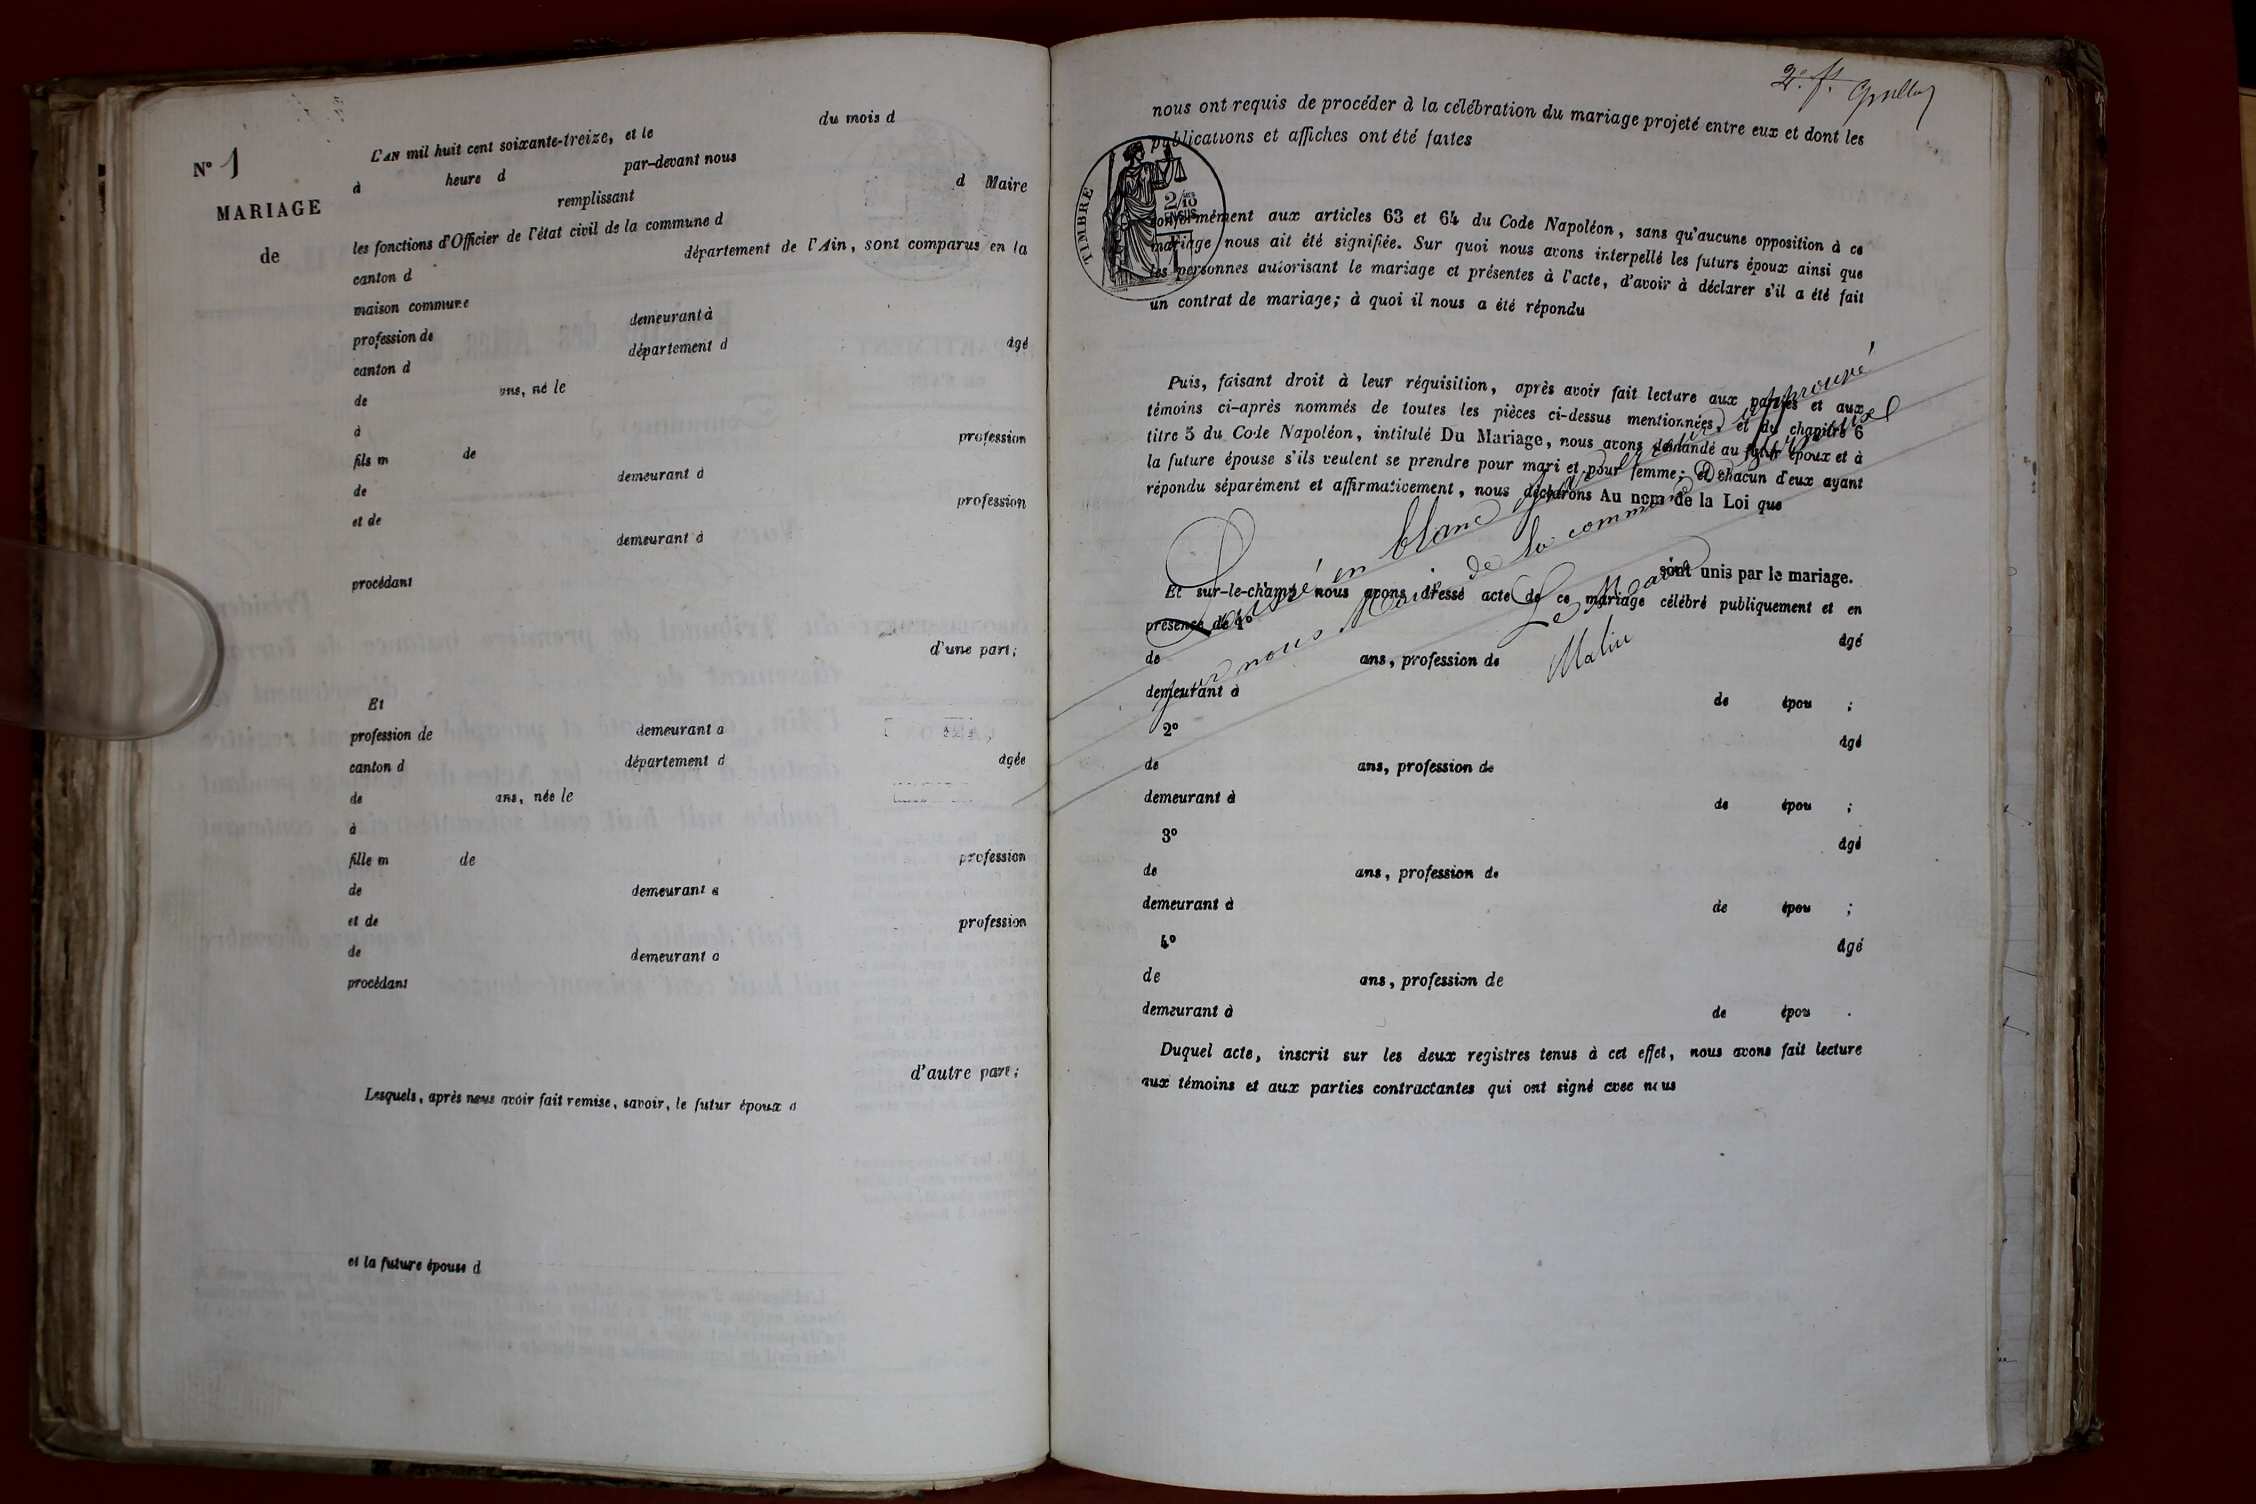 N° 1
MARIAGE
de
L'AN mil huit cent soixante-treize, et le
du mois d
à
heure d
par-devant nous
remplissant
d Maire
les fonctions d'Officier de l'état civil de la commune d
canton d
département de l'Ain, sont comparus en la
maison commune
profession de
demeurant à
canton d
département d
âgé
de
ans, né le
à
fils m
de
profession
de
demeurant à
et de
profession
demeurant à
procédant
d'une part;
Et
profession de
demeurant à
canton d
département d
âgée
de
ans, née le
à
fille m
de
profession
de
demeurant à
et de
profession
de
demeurant à
procédant
d'autre part;
Lesquels, après nous avoir fait remise, savoir, le futur époux d
et la future épouse d
2e. f.
nous ont requis de procéder à la célébration du mariage projeté entre eux et dont les
publications et affiches ont été faites
TIMBRE
2/10
EN SUS
conformément aux articles 63 et 64 du Code Napoléon, sans qu'aucune opposition à ce
mariage nous ait été signifiée. Sur quoi nous avons interpellé les futurs époux ainsi que
les personnes autorisant le mariage et présentes à l'acte, d'avoir à déclarer s'il a été fait
un contrat de mariage; à quoi il nous a été répondu
Puis, faisant droit à leur réquisition, après avoir fait lecture aux parties et aux
témoins ci-après nommés de toutes les pièces ci-dessus mentionnées, et du chapitre 6
titre 5 du Code Napoléon, intitulé Du Mariage, nous avons demandé au futur époux et à
la future épouse s'ils veulent se prendre pour mari et pour femme; et chacun d'eux ayant
répondu séparément et affirmativement, nous déclarons Au nom de la Loi que
sont unis par le mariage.
Et sur-le-champ nous avons dressé acte de ce mariage célébré publiquement et en
présence de 1°
âgé
de
ans, profession de
demeurant à
de épou ;
2°
âgé
de
ans, profession de
demeurant à
de épou ;
3°
âgé
de
ans, profession de
demeurant à
de épou ;
4°
âgé
de
ans, profession de
demeurant à
de épou .
Duquel acte, inscrit sur les deux registres tenus à cet effet, nous avons fait lecture
aux témoins et aux parties contractantes qui ont signé avec nous
Laissé en blanc approuvé
par nous Maire de la commune
Le Maire